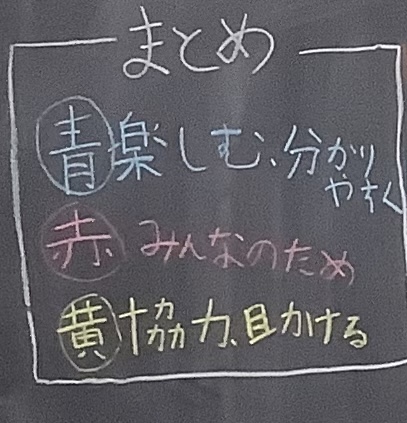 まとめ
青 楽しむ、分かり
やすく
赤 みんなのため
黄 協力、目かける